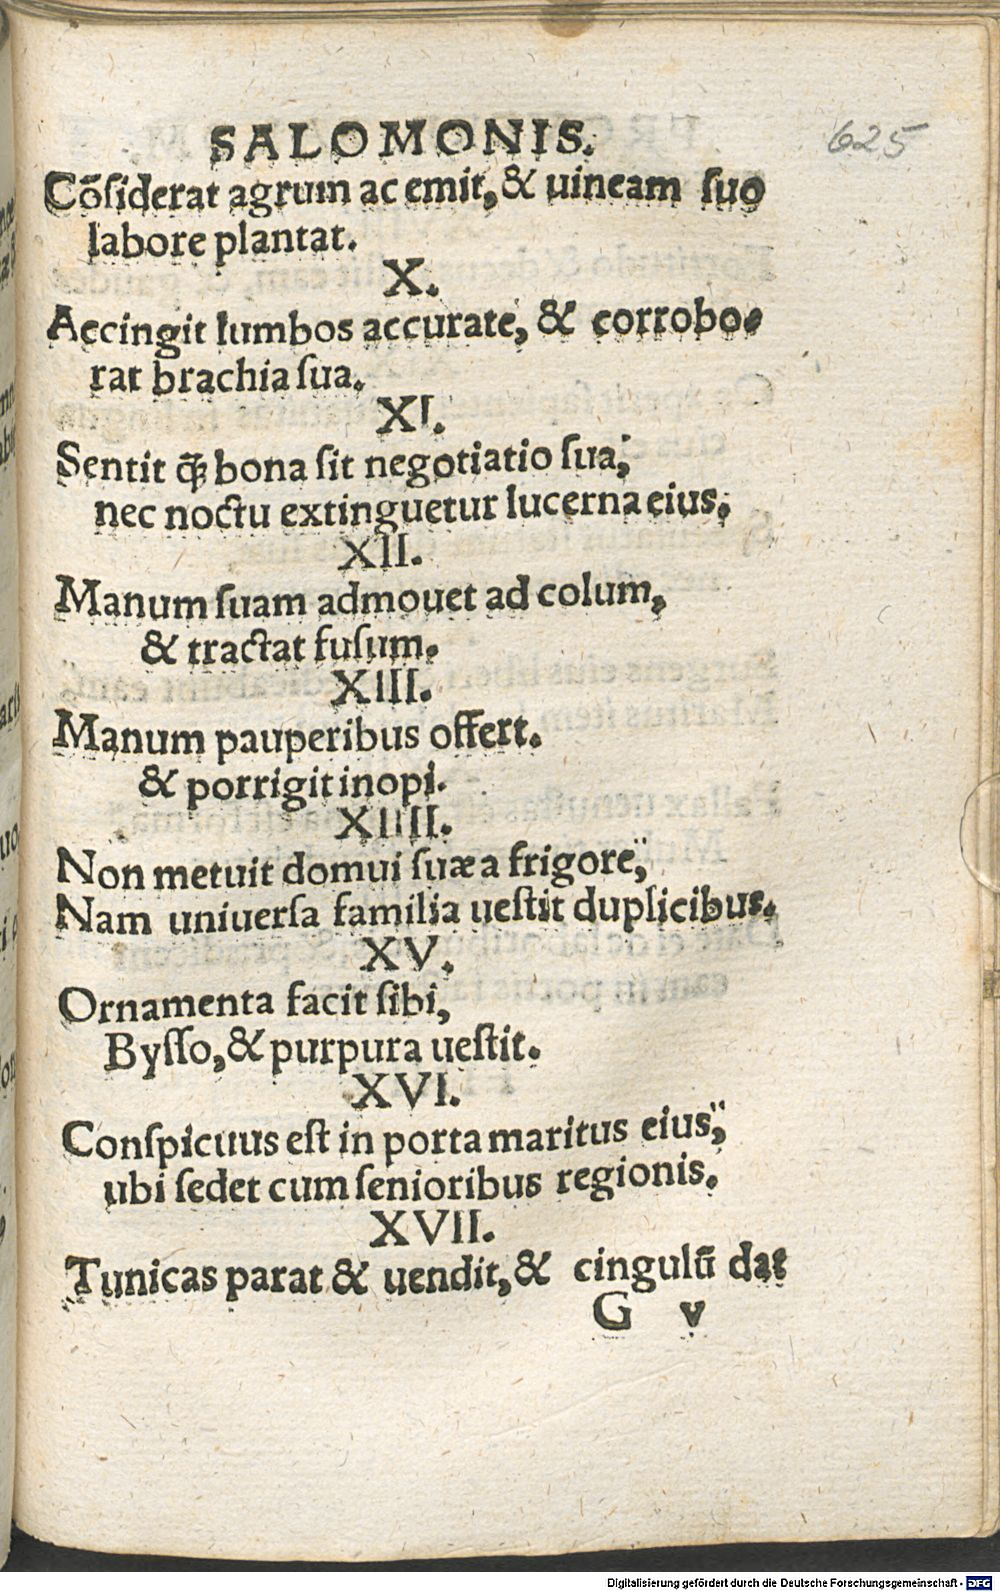 SALOMONIS.
625
Cõſiderat agrum ac emit, & uineam ſuo
labore plantat.
X.
Accingit lumbos accurate, & corrobo-
rat brachia ſua.
XI.
Sentit ꝙ̃ bona ſit negotiatio ſua,
nec noctu extinguetur lucerna eius.
XII.
Manum ſuam admouet ad colum,
& tractat fuſum.
XIII.
Manum pauperibus offert.
& porrigit inopi.
XIIII.
Non metuit domui ſuæ a frigore,
Nam uniuerſa familia ueſtit duplicibus.
XV.
Ornamenta facit ſibi,
Byſſo, & purpura ueſtit.
XVI.
Conſpicuus eſt in porta maritus eius,
ubi ſedet cum ſenioribus regionis.
XVII.
Tunicas parat & uendit, & cingulũ dat
G v
Digitalisierung gefördert durch die Deutsche Forschungsgemeinschaft - DFG